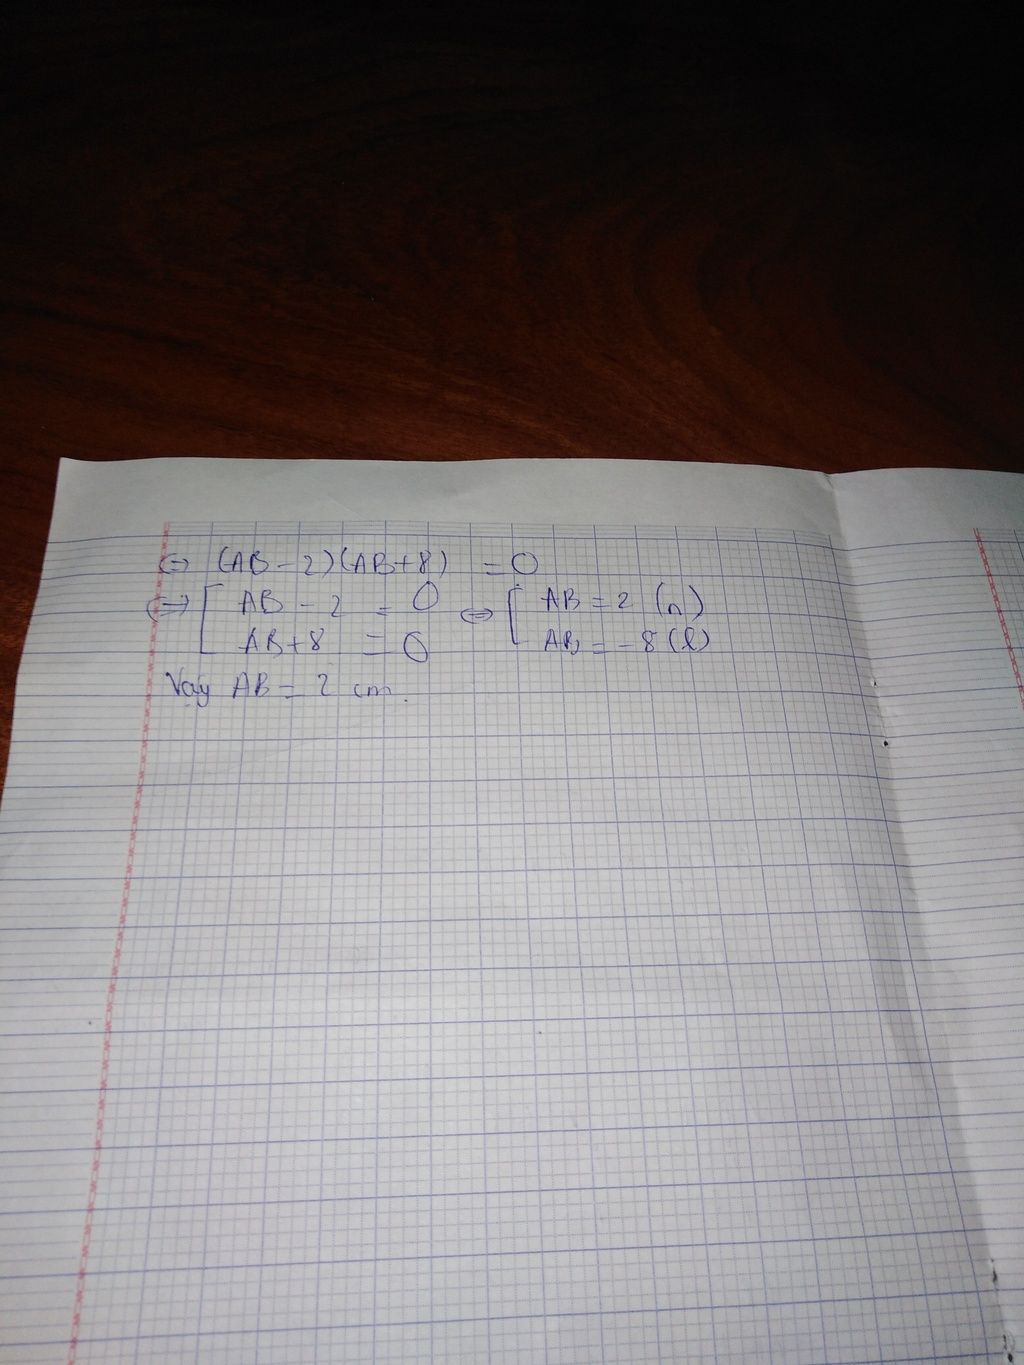 ⇔ (AB - 2)(AB+8) = 0
⇔ [ AB - 2 = 0 ⇔ [ AB = 2 (n)
AB+8 = 0 AB = -8 (l)
Vậy AB = 2 cm.